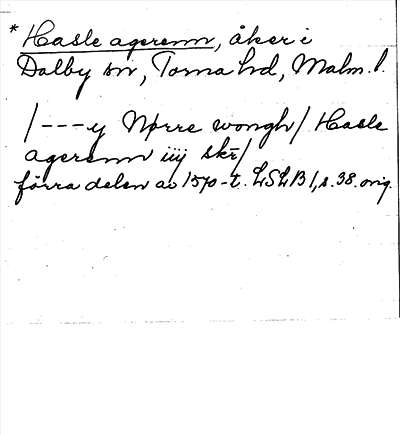 * Hasle agerenn, åker i
Dalby sn, Torna hd, Malm. l.
/---y Nørre wongh/ Hasle
agerenn iiij skr/
förra delen av 1570-t. LSLB 1, s. 38. orig.